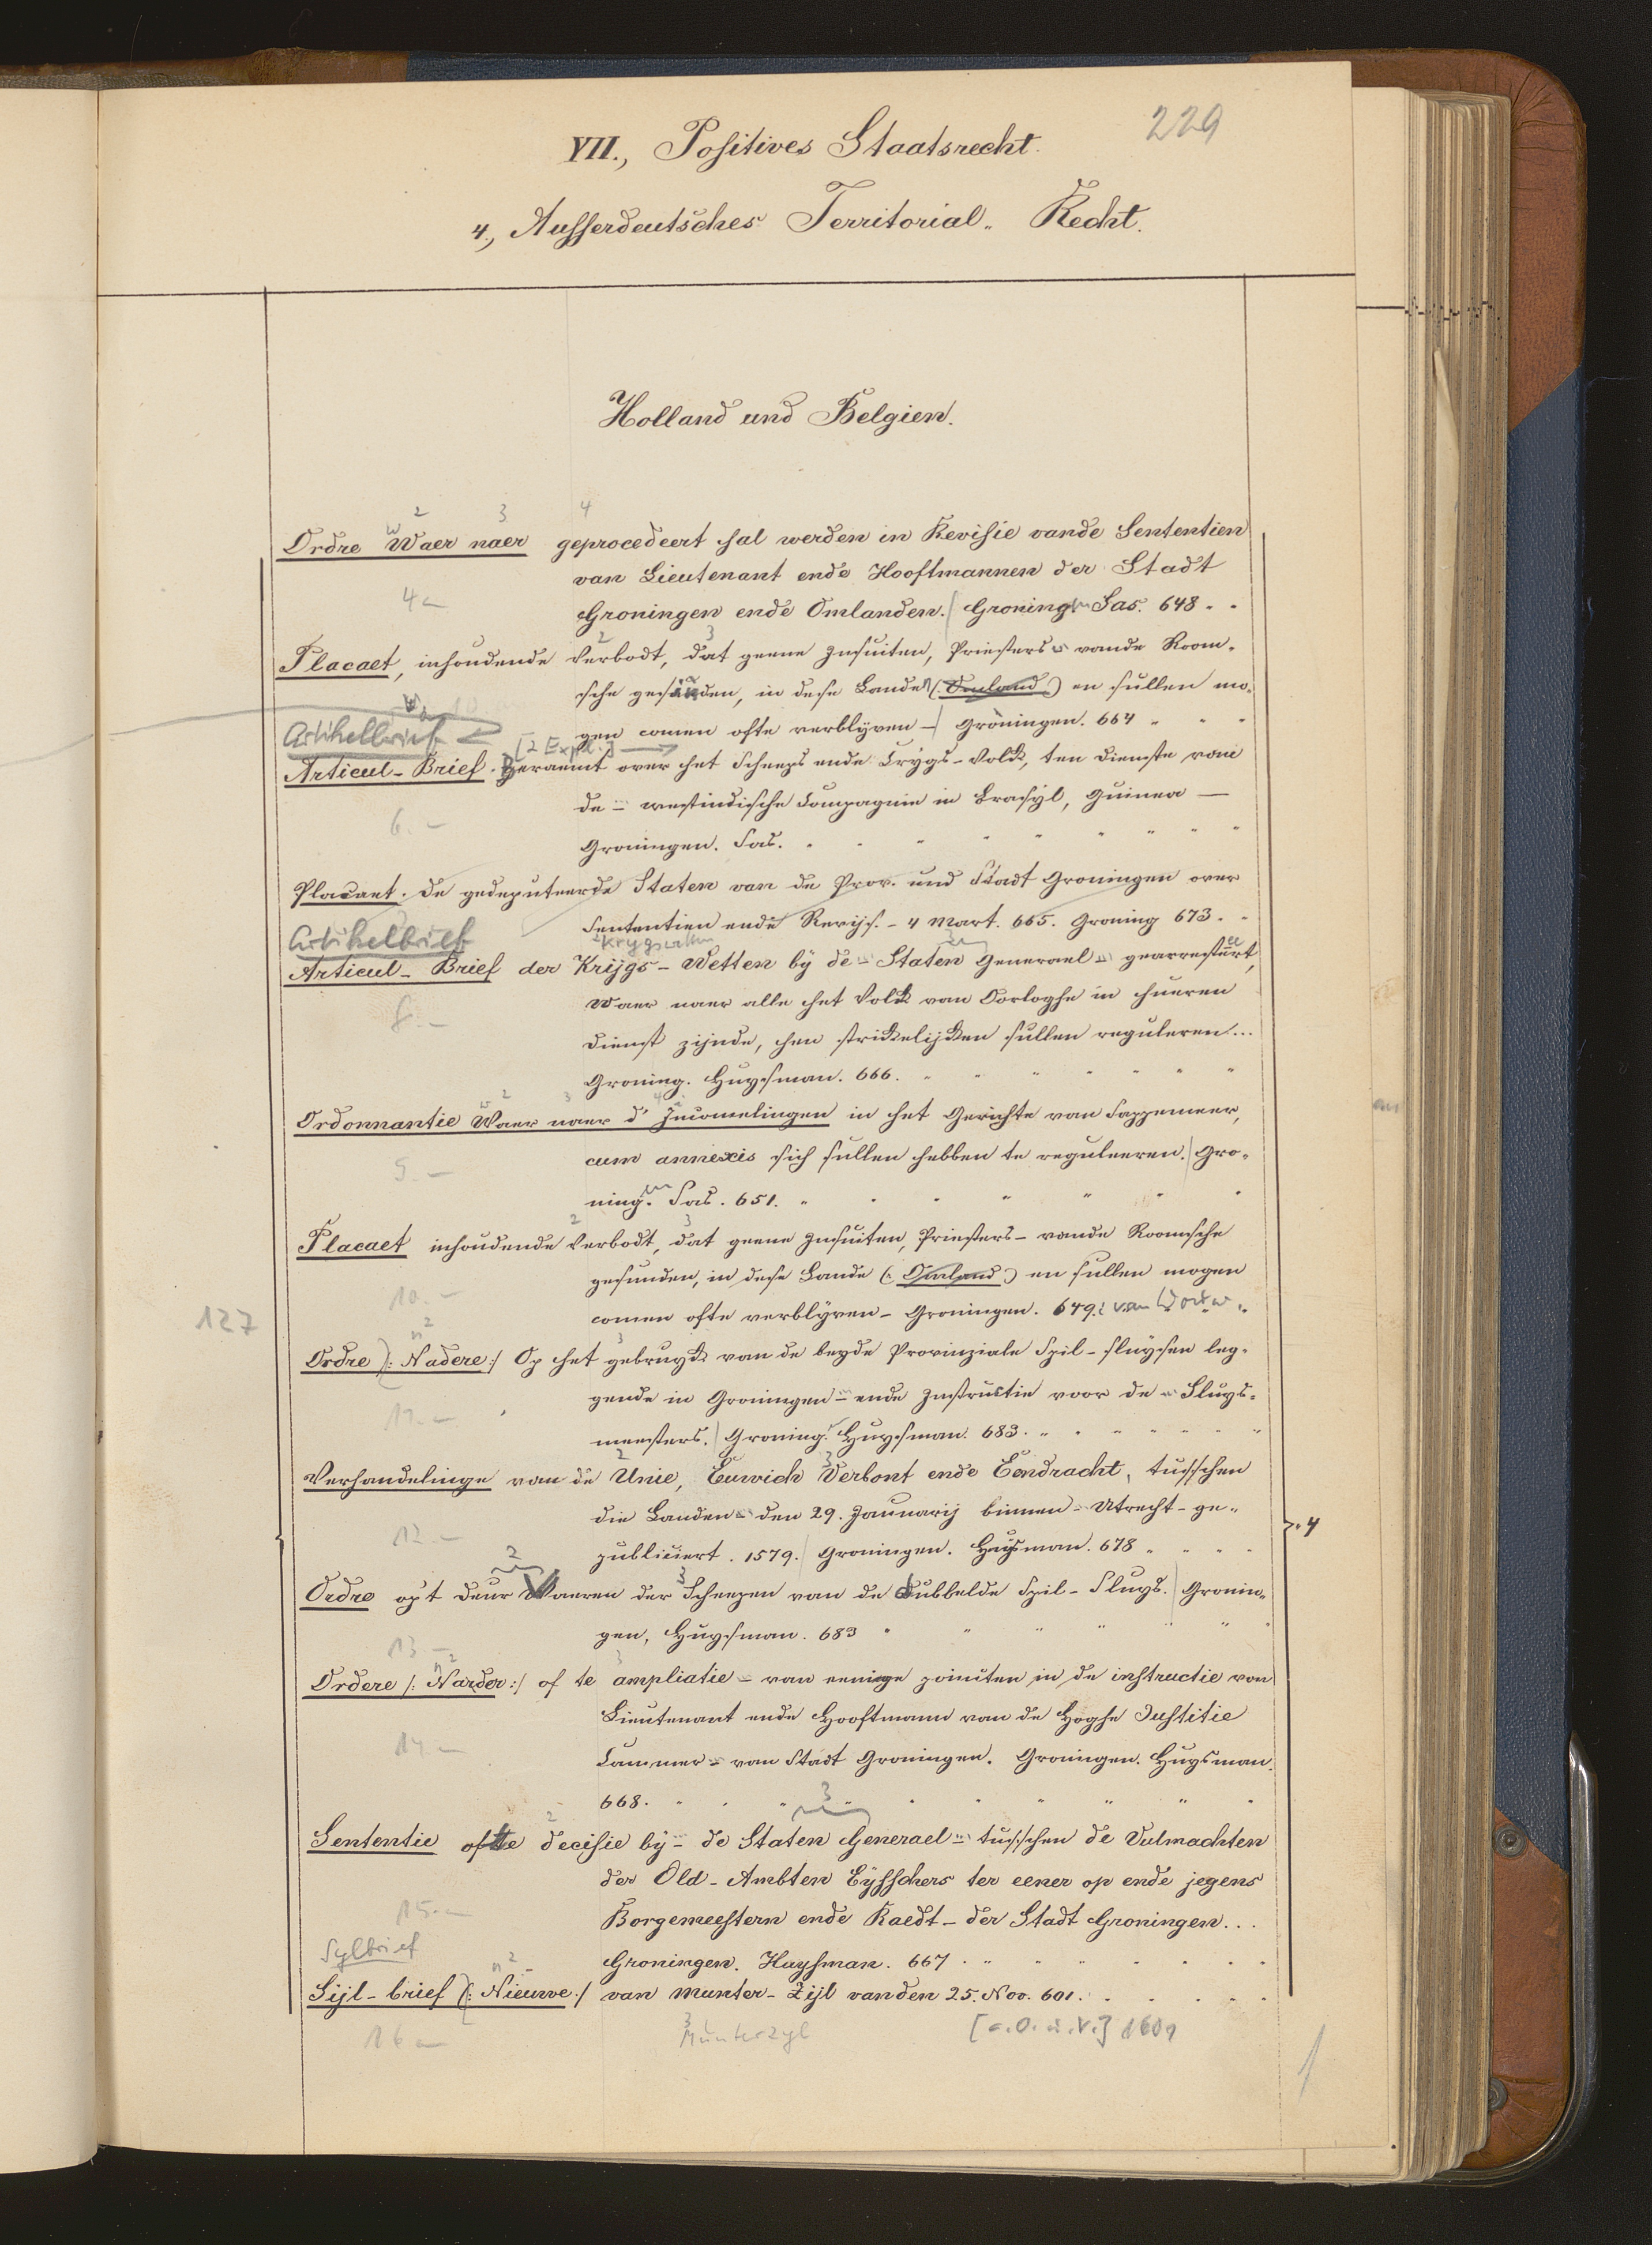 229
VII., Positives Staatsrecht.
4., Ausserdeutsches Territorial-Recht.
Holland und Belgien.
2 3 4
Ordre Waer naer geprocedeert sal werden in Revisie vande Sententien
van Lieutenant ende Hooftmannen der Stadt
4
Groningen ende Omlanden. Groning Sas. 648 " "
Placaet, inhoudende Verbodt, dat geene Jesuiten, Priesters - vande Room-
sche gesinden, in dese Lande (Omland) en sullen mo-
gen comen ofte verblyven - Gröningen. 664 " " "
Artikelbrief [2 Expl.]
Articul-Brief. Beraemt over het Scheeps ende Crygs-Volck, ten dienste van
de - westindische Compagnie in Brasyl, Guinea -
6.-
Groningen. Sas. " " " " " " "
Placaet. De gedeputeerde Staten van de Prov. und Stadt Groningen over
Sententien ende Revijs. - 4 Mart. 665. Groning 673. "
Artikelbrief
Articul-Brief der Krijgs-Wetten by de - Staten Generael - gearresteert,
Waer naer alle het Volck van Oorloghe in hueren
8.-
Dienst zijnde, hen strickelijcken sullen reguleren...
Groning. Huysman. 666. " " " " " "
2 3
Ordonnantie Waer naer d' Incomelingen in het Gerichte van Sappemeer,
cum annexis sich sullen hebben te reguleeren. Gro-
5.-
ning. Sas. 651. " " " " " "
2 3
Placaet inhoudende Verbodt, dat geene Jesuiten, Priesters - vande Roomsche
gesinden, in dese Lande (: Omland :) en sullen mogen
10.-
comen ofte verblyven - Groningen. 649.
127
Ordre /: Nadere :/ Op het gebruyck van de beyde Provinziale Spil-sluysen leg-
gende in Groningen - ende Instructie voor de - Sluys-
11.-
meesters. Groning. Huysman. 683. " " " " " "
Verhandelinge van de Unie, Eeuwich Verbont ende Eendracht, tusschen
die Landen - den 29. Januarij binnen - Utrecht - ge-
12.-
publiciert. 1579. Groningen. Huysman. 678 " " " "
"4
2 3
Ordre op't Deur Vaeren der Scheepen van de dubbelde Spil-Sluys. Gronin-
gen, Huysman. 683 " " " " " "
13.-
Ordere /: Narder :/ of te ampliatie - van eenige poincten in de instructie van
Lieutenant ende Hooftmann van de Hoghe Justitie
14.-
Cammer - van Stadt Groningen. Groningen. Huysman.
668. " " " " " " " " "
2 3
Sententie ofte decisie by - de Staten Generael - tusschen de Vulmachten
der Old-Ambten Eysschers ter eener op ende jegens
15.-
Borgemeestern ende Raedt - der Stadt Groningen...
Sylbrief
Groningen. Huysman. 667 . " " " " " "
Sijl-brief /: Nieuwe :/ van Munter-Zijl vanden 25. Nov. 601. " " " " "
16
Munterzyl [o.O.u.V.] 1601